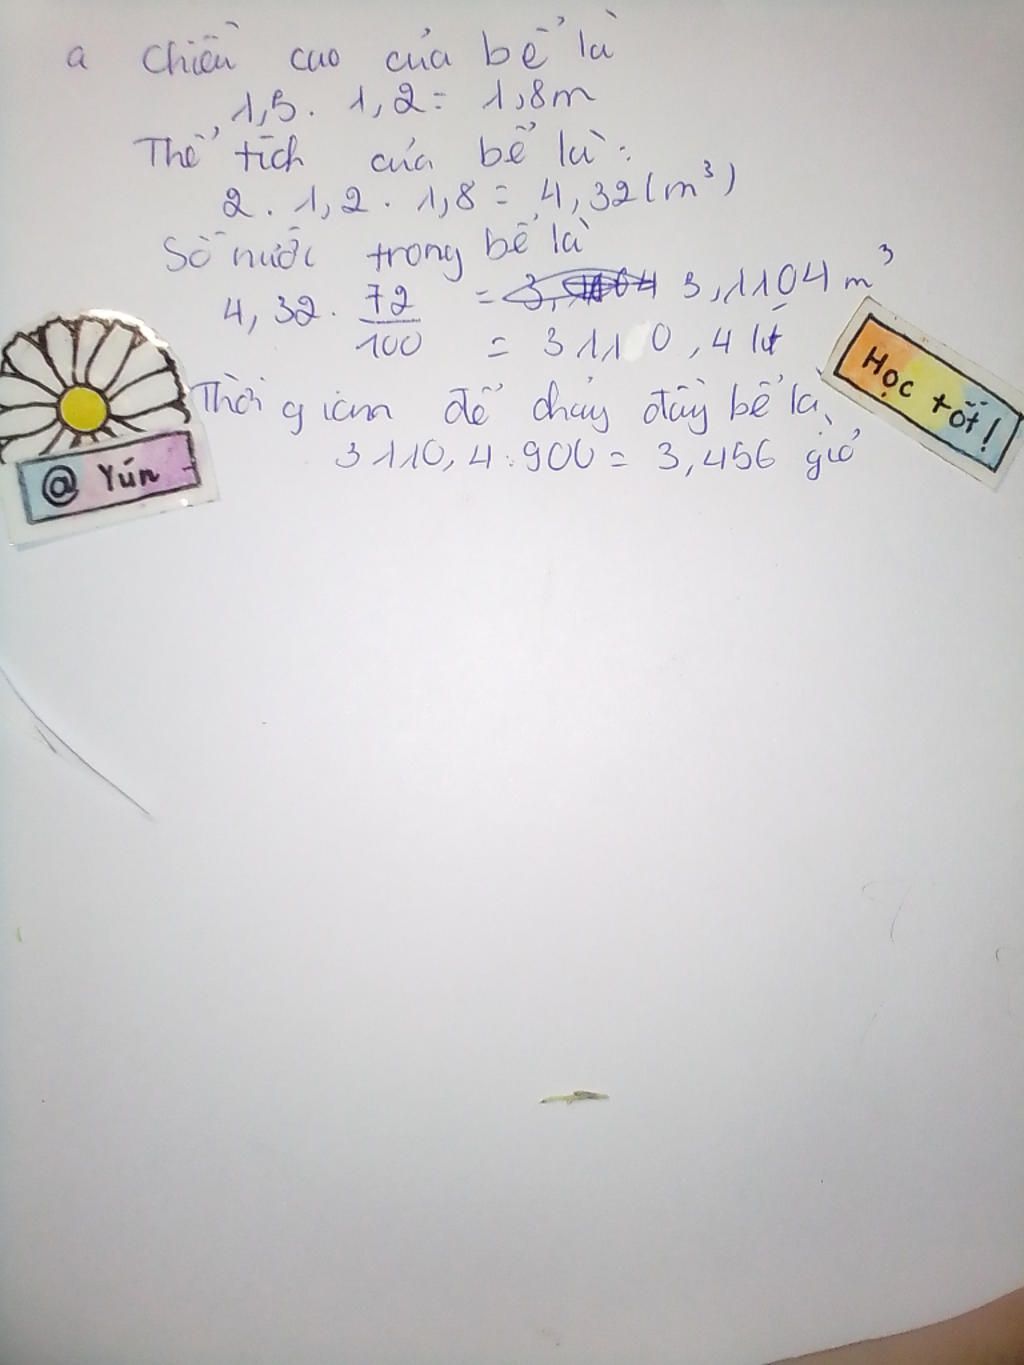 a chiều cao của bể là
1,5. 1,2 = 1,8m
Thể tích của bể là:
2. 1,2. 1,8 = 4,32 (m³)
Số nước trong bể là
4,32. 72/100 = 3,1104 m³
= 3110,4 lít
Thời gian để chảy đầy bể là
3110,4 : 900 = 3,456 giờ
@ Yún
Học tốt!